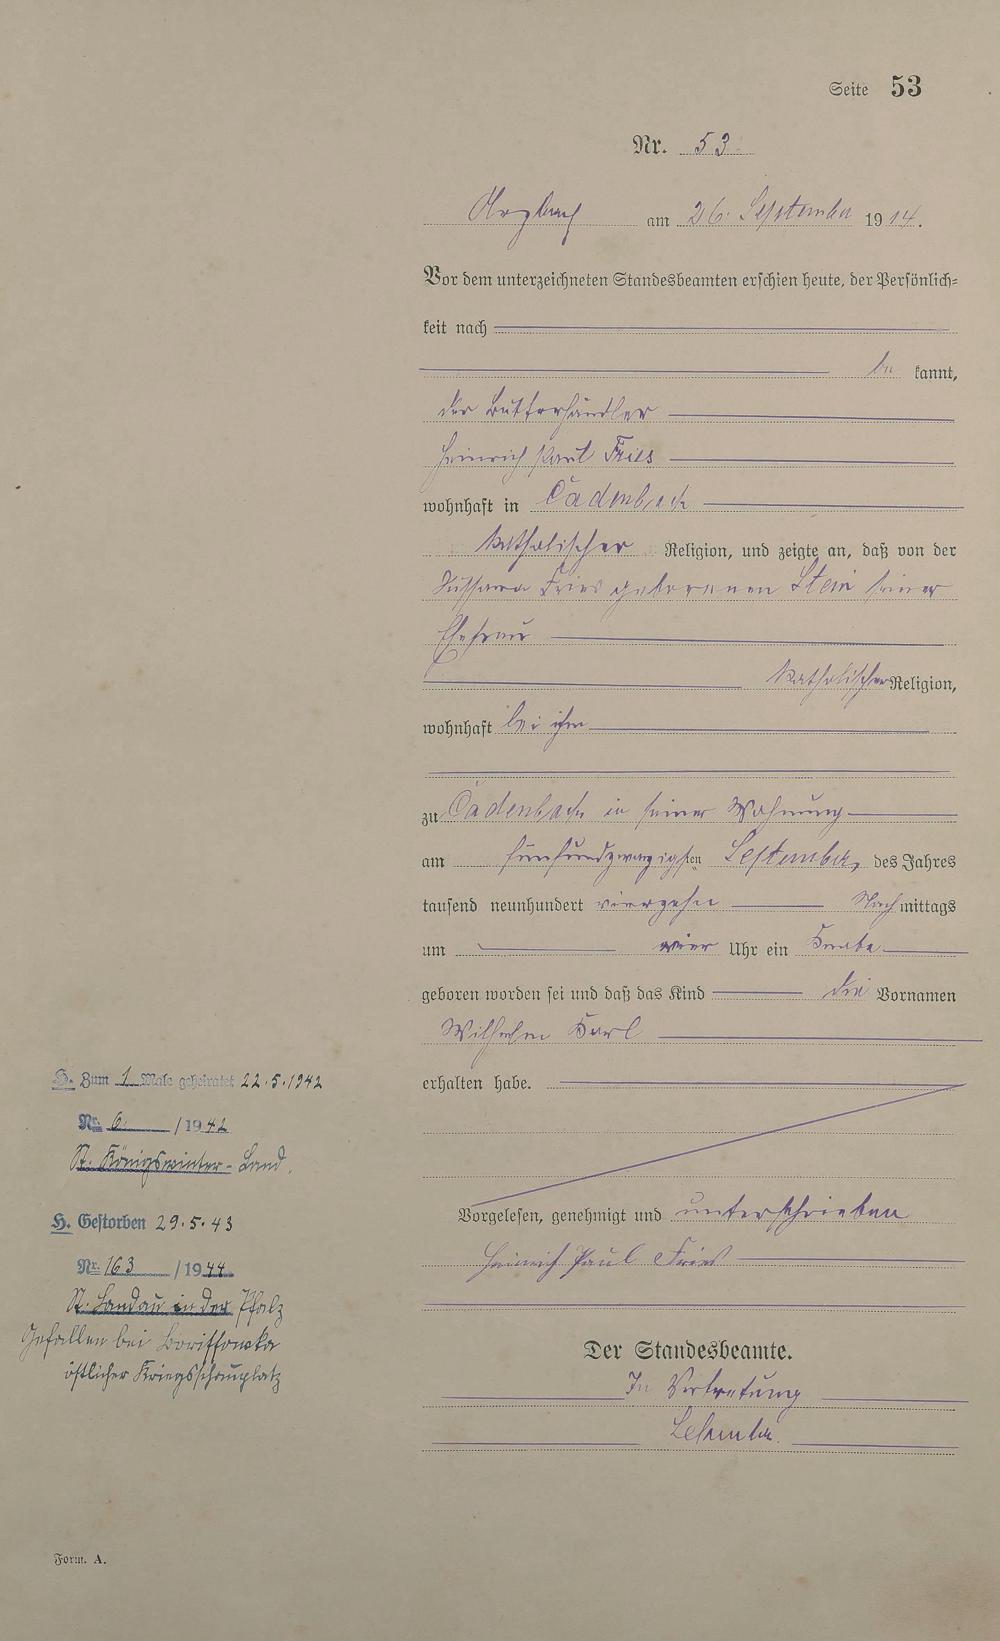 Seite 53
Nr. 53
Arzbach am 26. September 1914.
Vor dem unterzeichneten Standesbeamten erschien heute, der Persönlich-
keit nach
be kannt,
der Butterhändler
Heinrich Paul Fries
wohnhaft in Cadenbach
katholischer Religion, und zeigte an, daß von der
Sussana Fries geborenen Stein seiner
Ehefrau
katholischer Religion,
wohnhaft bei ihm
zu Cadenbach in seiner Wohnung
am fünfundzwanzigsten September, des Jahres
tausend neunhundert vierzehn Nach mittags
um vier Uhr ein Knabe
geboren worden sei und daß das Kind die Vornamen
Wilhelm Karl
erhalten habe.
Vorgelesen, genehmigt und unterschrieben
Heinrich Paul Fries
Der Standesbeamte.
In Vertretung
H. Zum 1. Male geheiratet 22.5.1942
Nr. 6 /1942
St. Königswinter-Land.
H. Gestorben 29.5.43
Nr. 163 /1944
St. Landau in der Pfalz
Gefallen bei Borissowka
östlicher Kriegsschauplatz
Form. A.